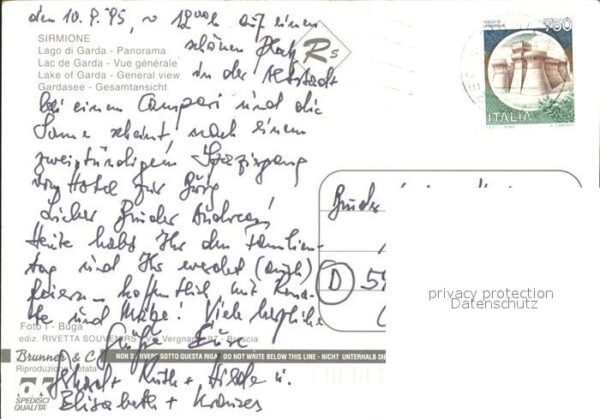 den 10.9.'95, ~ 12 Uhr auf einem
schönen Platz
in der Altstadt
SIRMIONE
Lago di Garda - Panorama
Lac de Garda - Vue générale
Lake of Garda - General view
Gardasee - Gesamtansicht
R5
750
ITALIA
bei einem Campari und die
Sonne scheint nach einem
zweistündigem Spaziergang
vom Hotel zur Burg
Lieber Bruder Andreas!
Heute habt Ihr den Familien-
tag und Ihr werdet (auch)
feiern hoffentlich mit
und Viele herzliche
Grüße Eure
+ Ruth + Hilde u.
Elisabeth +
Bruder
D 59
privacy protection
Datenschutz
Foto T - Buga
ediz. RIVETTA SOUVENIRS - Via Vergnano, 97 - Brescia
Brunner & C
Riproduzione vietata
NON SCRIVERE SOTTO QUESTA RIGA - DO NOT WRITE BELOW THIS LINE - NICHT UNTERHALB DIE
ok
SPEDISCI
QUALITÀ